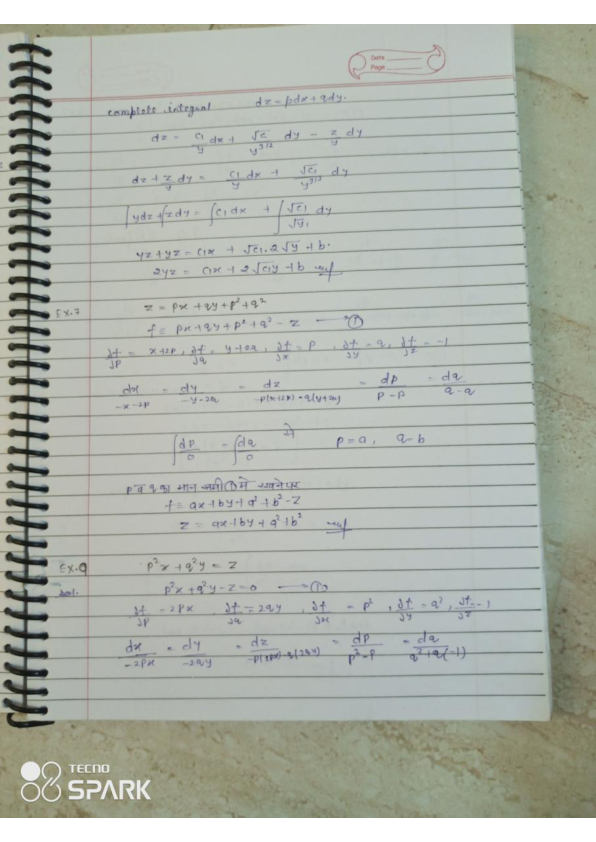 Date
Page
complete integral dz = pdx + qdy.
dz = c₁/y dx + √c₁/y^3/2 dy - z/y dy
dz + z/y dy = c₁/y dx + √c₁/y^3/2 dy
∫ydz + ∫zdy = ∫c₁dx + ∫√c₁/√y dy
yz + yz = c₁x + √c₁.2√y + b.
2yz = c₁x + 2√c₁y + b
Ex.7 z = px + qy + p² + q²
f = px + qy + p² + q² - z —①
∂f/∂p = x+2p, ∂f/∂q = y+2q, ∂f/∂x = p, ∂f/∂y = q, ∂f/∂z = -1
dx/-x-2p = dy/-y-2q = dz/-p(x+2p)-q(y+2q) = dp/p-p = dq/q-q
∫dp/0 = ∫dq/0 से p = a, q = b
p व q का मान समी ① में रखने पर
f = ax+by+a²+b²-z
z = ax+by+a²+b²
Ex.9 p²x + q²y = z
Sol. p²x + q²y - z = 0 —①
∂f/∂p = 2px, ∂f/∂q = 2qy, ∂f/∂x = p², ∂f/∂y = q², ∂f/∂z = -1
dx/-2px = dy/-2qy = dz/-p(2px)-q(2qy) = dp/p²-p = dq/q²+q(-1)
TECNO
SPARK